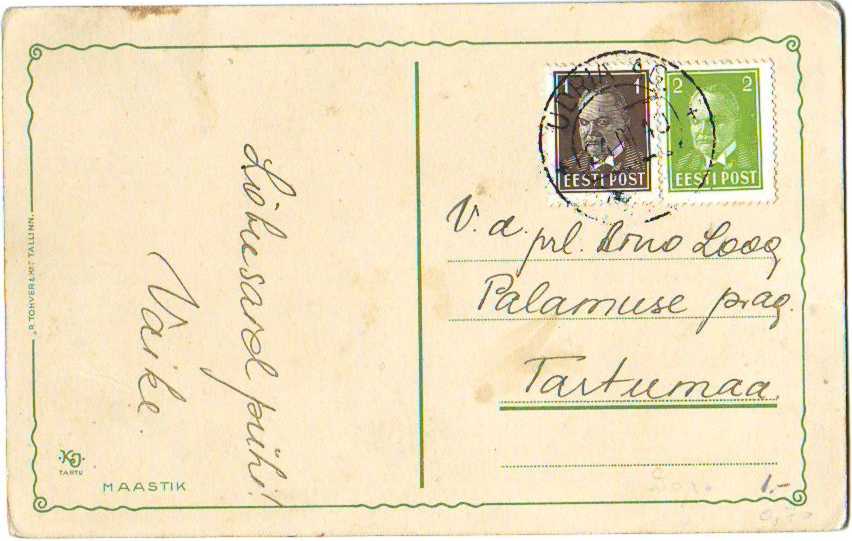 Lõbusaid pühi!
Vaike.
R. TOHVER & KO TALLINN.
KJ.
TARTU
MAASTIK
1 1
EESTI POST
2 2
EESTI POST
V. a. prl. Loog
Palamuse prag.
Tartumaa
1.-